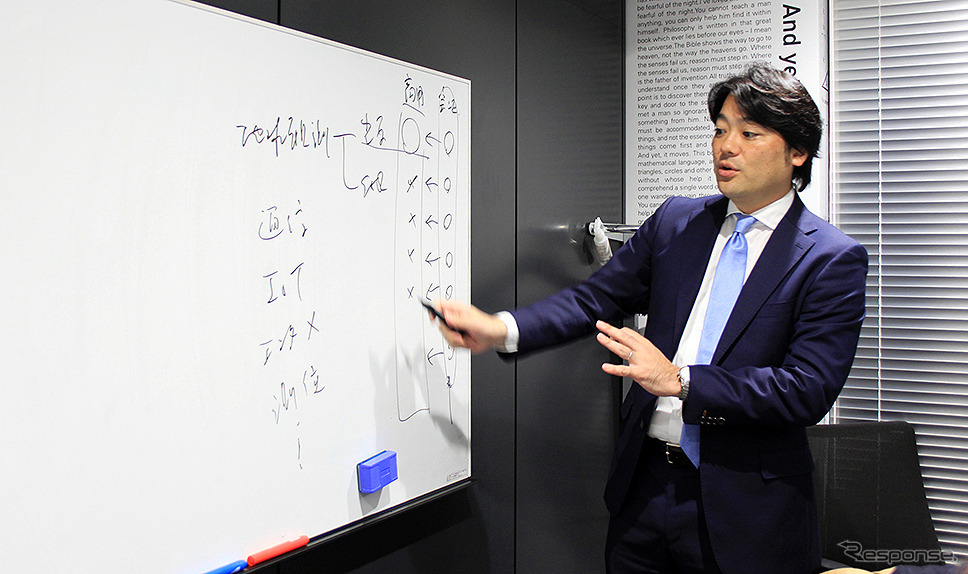 商用
地球観測
光学
○ ← ○
SAR
× ← ○
通信
× ← ○
× ← ○
IoT
× ← ○
エンタメ
測位
fearful of the night.You cannot teach a man
anything, you can only help him find it within
Philosophy is written in that great
book which ever lies before our eyes – I mean
the universe.The Bible shows the way to go to
heaven, not the way the heavens go. Where
the senses fail us, reason must step in. Where
the senses fail us, reason must step
is the father of invention.All truths
understand once they a
point is to discover them
key and door to the s
met a man so ignorant
something from him.
must be accommodated
things, and not the essence
things come first and
And yet, it moves. This bo
mathematical language,
triangles, circles and other
without whose help it
comprehend a single word o
one wanders
And ye
Response.